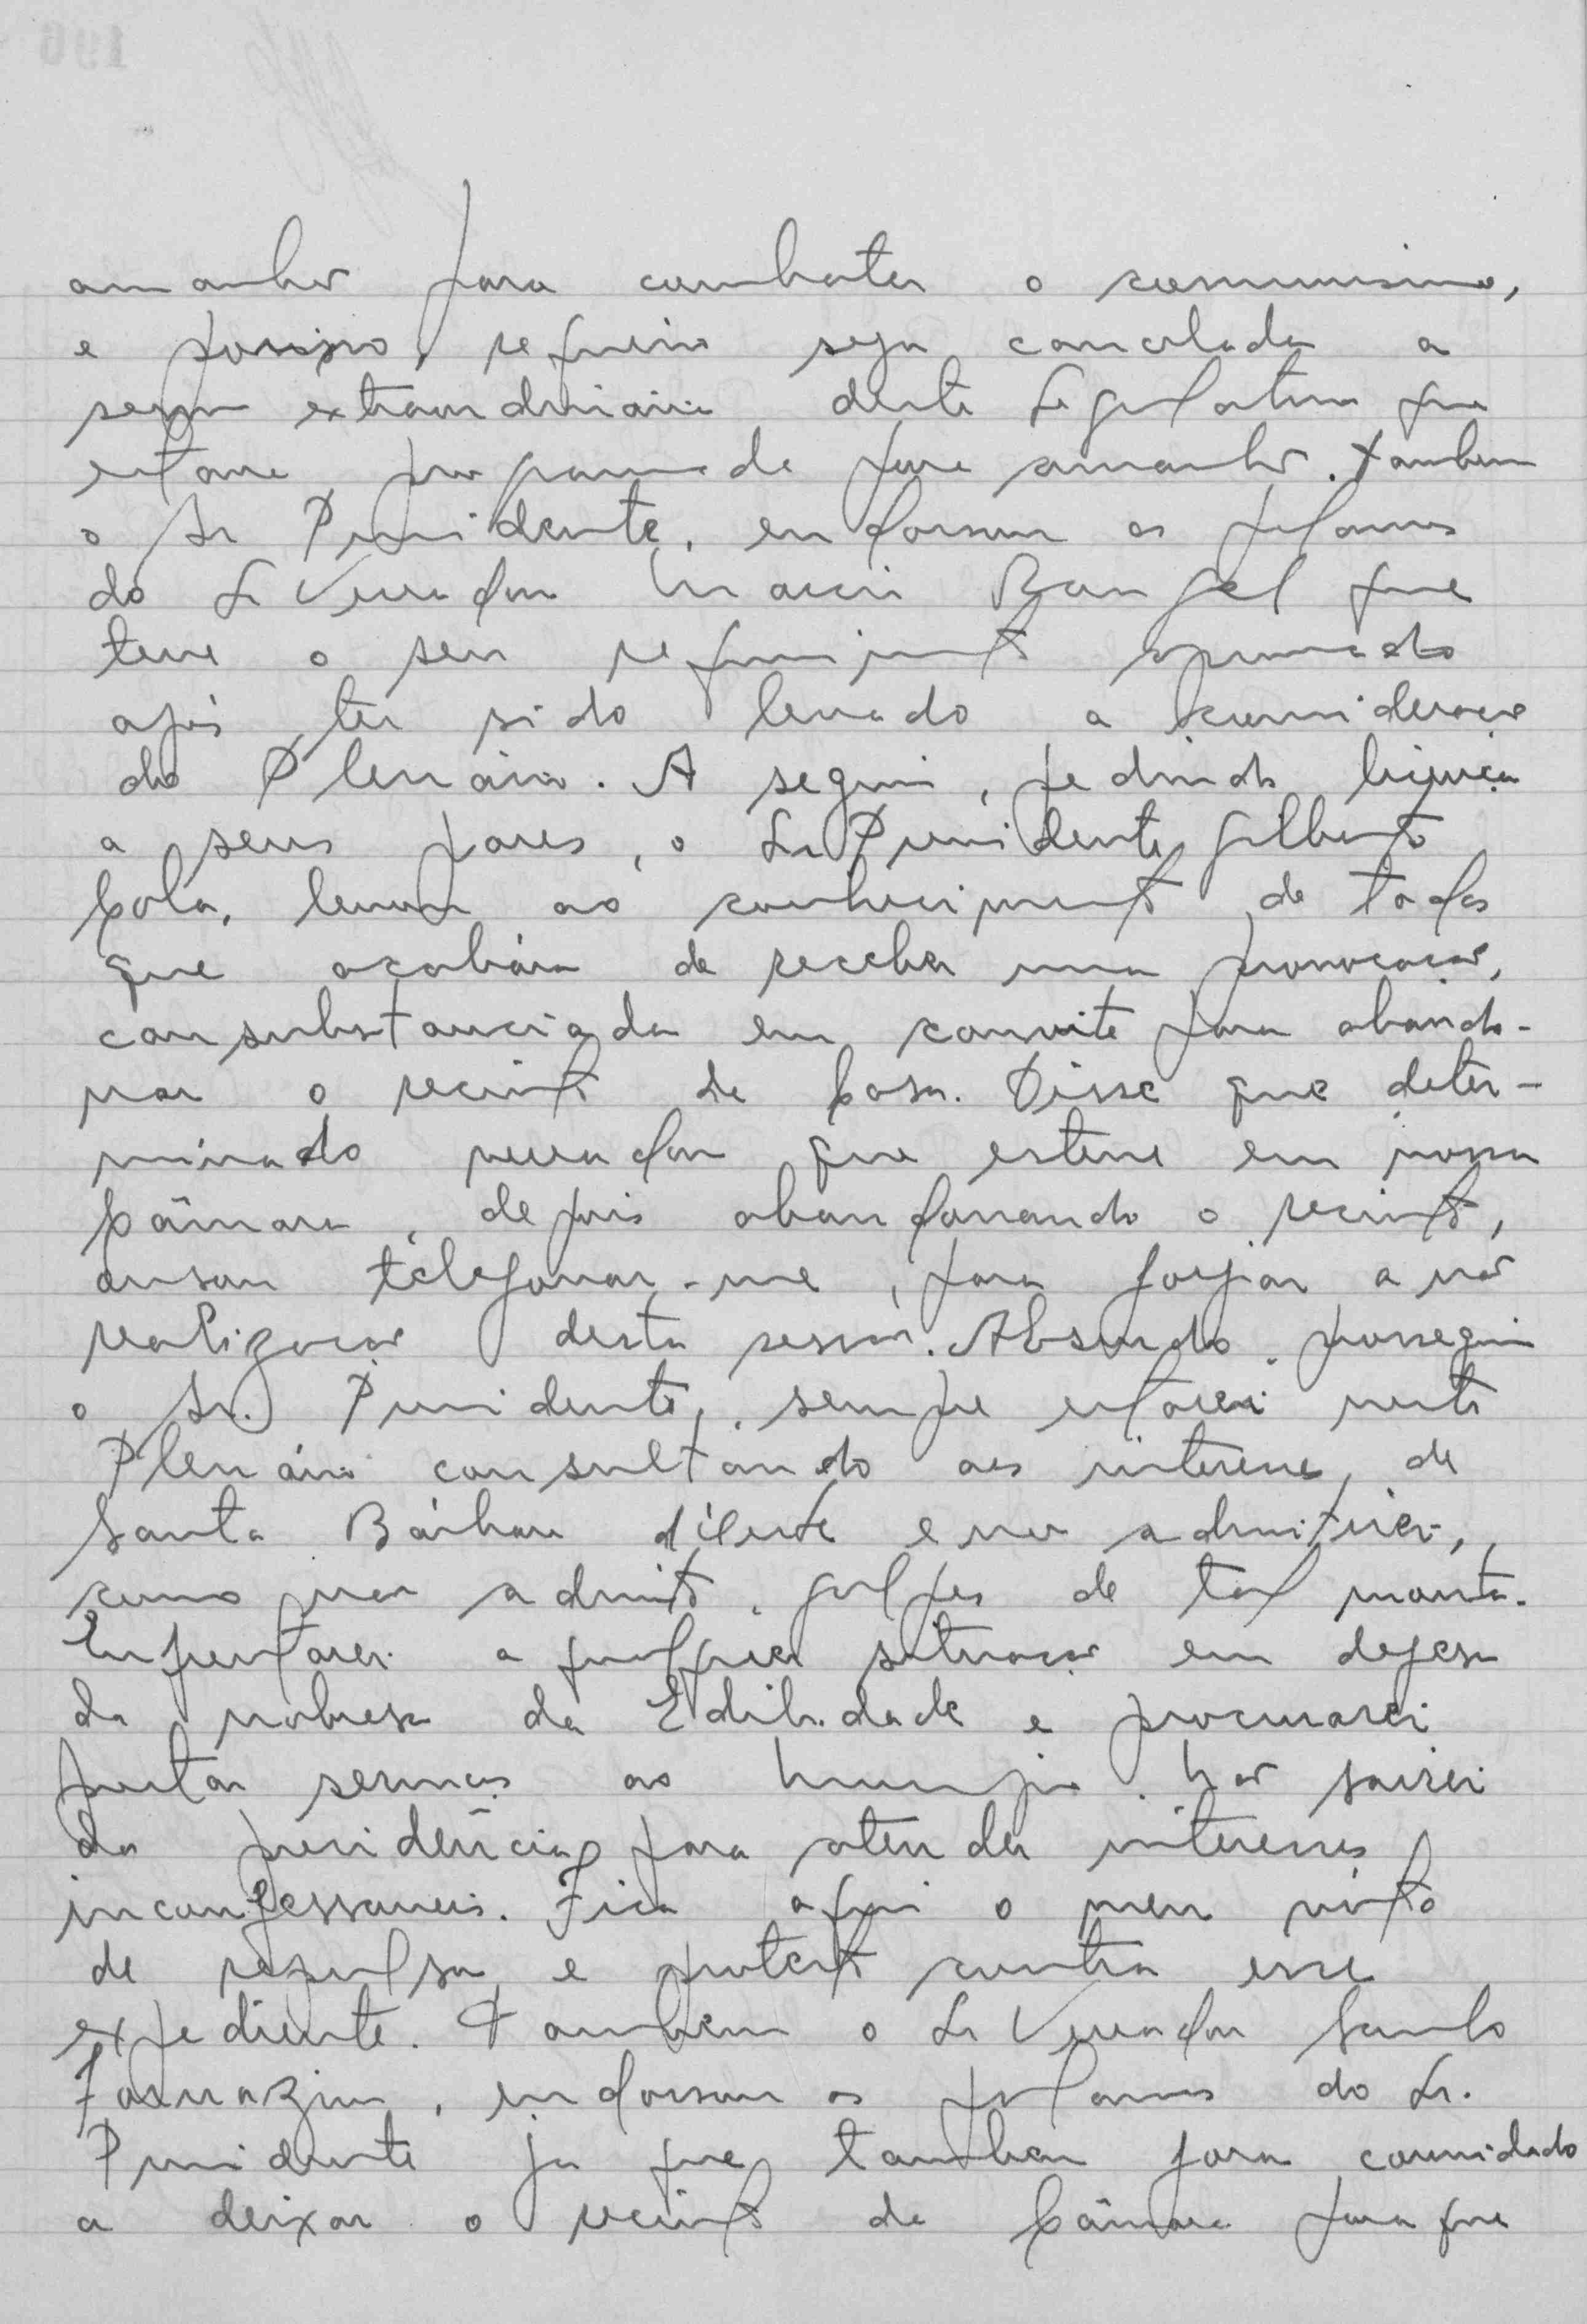 amanhã para combater o comunismo,
e por isso, requeiro seja cancelada a
sessão extraordinária desta Legislatura que
estava programada para amanhã. Também
o Sr Presidente, endossou as palavras
do Sr Vereador Marcio Rangel que
teve o seu requerimento aprovado
após ter sido levado a consideração
do Plenário. A seguir, pedindo licença
a seus pares, o Sr Presidente Gilberto
Cola, levou ao conhecimento de todos
que acabára de receber uma provocação,
consubstanciada em convite para abando-
nar o recinto da Casa. Disse que deter-
minado vereador que esteve em nossa
Câmara, depois abandonando o recinto,
ousou telefonar-me, para forjar a não
realização desta sessão. Absurdo, prossegui
o Sr. Presidente, sempre estarei neste
Plenário consultando aos interesses de
Santa Bárbara d'Oeste e não admitirei,
como não admito, golpes de tal monta.
Enfrentarei a qualquer situação em defesa
da nobresa da Edilidade e procurarei
prestar serviços ao Município. Não sairei
da presidência para atender interesses
inconfessaveis. Fica aqui o meu voto
de repulsa e protesto contra esse
expediente. Tambem o Sr Vereador Santo
Fornazin, endossou as palavras do Sr.
Presidente ja que tambem fora convidado
a deixar o recinto da Câmara para que